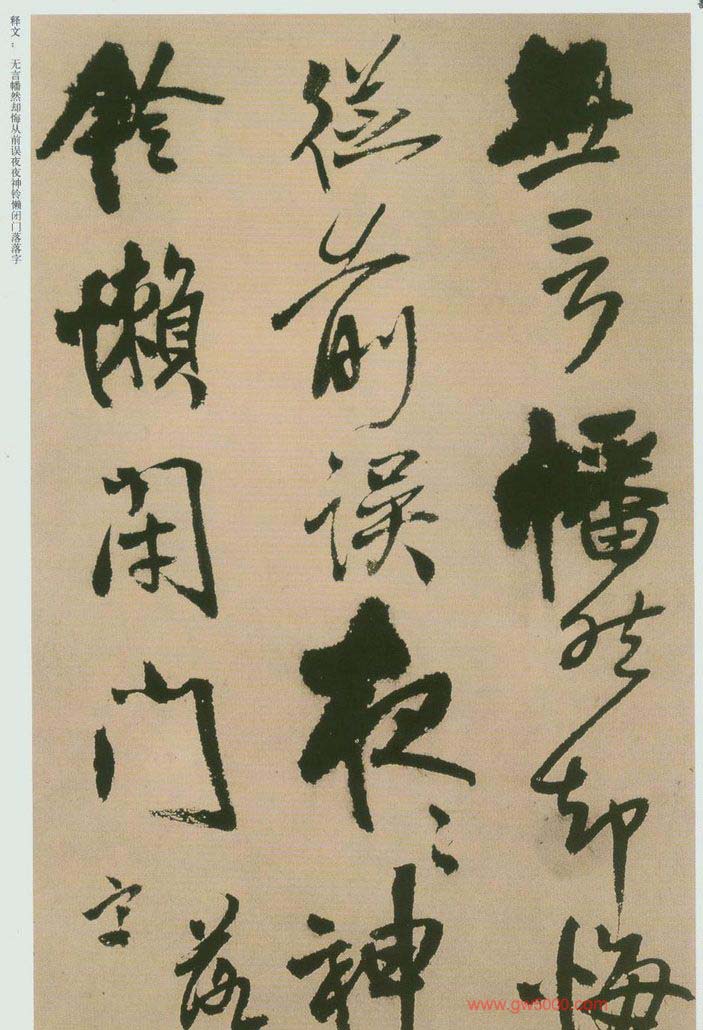 释文： 无言幡然却悔从前误夜夜神铃懒闭门落落字
無言幡然却悔
從前誤夜〻神
鈴懶閉門落
字
www.gw5000.com